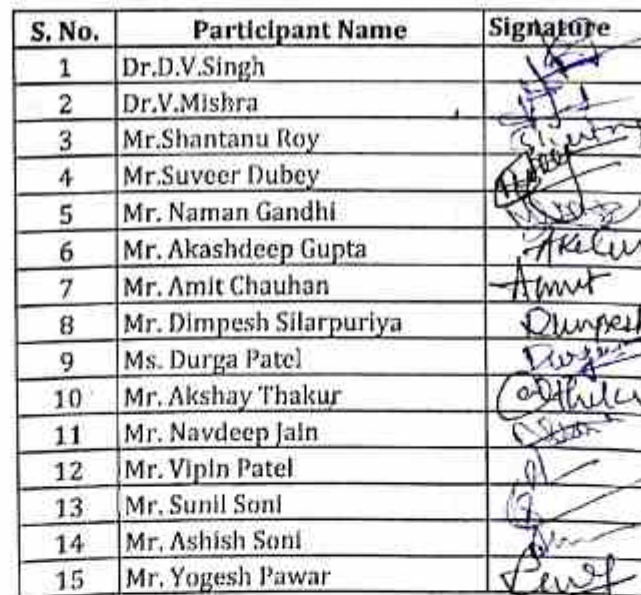 S. No. Participant Name Signature
1 Dr.D.V.Singh
2 Dr.V.Mishra
3 Mr.Shantanu Roy
4 Mr.Suveer Dubey
5 Mr. Naman Gandhi
6 Mr. Akashdeep Gupta
7 Mr. Amit Chauhan Amit
8 Mr. Dimpesh Silarpuriya Dimpesh
9 Ms. Durga Patel
10 Mr. Akshay Thakur
11 Mr. Navdeep Jain
12 Mr. Vipin Patel
13 Mr. Sunil Soni
14 Mr. Ashish Soni
15 Mr. Yogesh Pawar